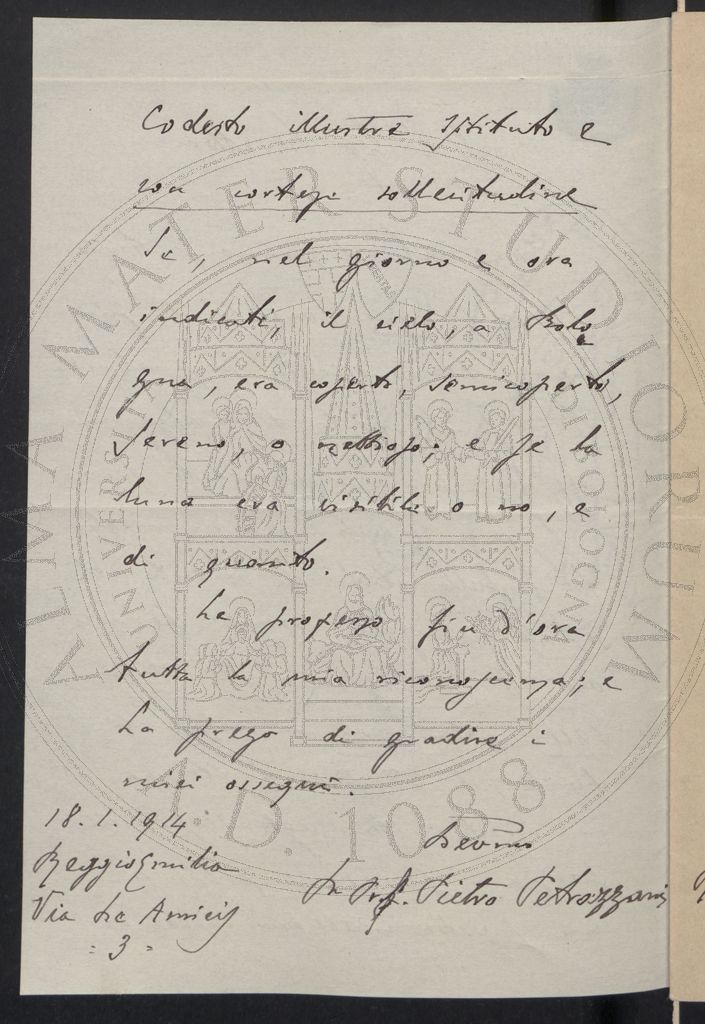 Codesto illustre Istituto e
con cortese sollecitudine
Se, nel giorno e ora
indicati, il cielo, a Bolo
gna, era coperto, semicoperto,
sereno, o nebbioso; e se la
luna era visibile o no, e
di quanto.
Le professo fin d'ora
tutta la mia riconoscenza; e
La prego di gradire i
miei ossequi.
18.1.1914
Reggio Emilia
Via De Amicis
= 3 =
Devmo
Dr Prof. Pietro Petrazzani
ALMA MATER STUDIORUM
A.D. 1088